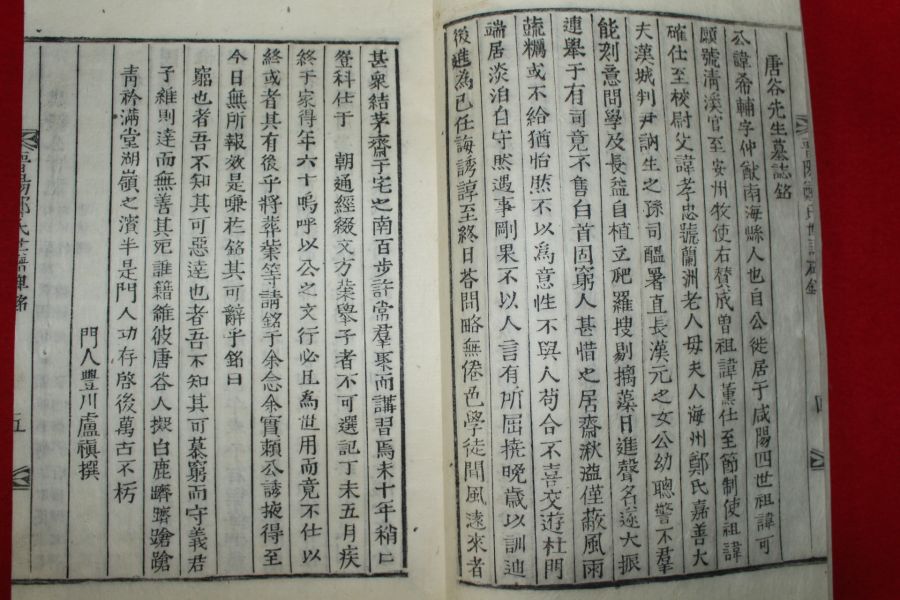 唐谷先生墓誌銘
公諱希輔字仲猷南海縣人也自公徙居于咸陽四世祖諱可
願號淸溪官至安州牧使右贊成曾祖諱薰仕至節制使祖諱
確仕至校尉父諱孝忠號蘭洲老人毋夫人海州鄭氏嘉善大
夫漢城判尹訥生之孫司醞署直長漢元之女公幼聰警不羣
能刻意問學及長益自植立爬羅搜剔摛藻日進聲名遂大振
連擧于有司竟不售白首固窮人甚惜之居齋湫溢僅蔽風雨
蔬糲或不給猶怡然不以爲意性不與人苟合不喜交遊杜門
端居淡泊自守然遇事剛果不以人言有所屈撓晩歲以訓迪
後進為己任誨誘諄至終日荅問略無倦色學徒聞風遠來者
甚衆結茅齋于宅之南百步許常羣聚而講習焉未十年稍
登科仕于 朝通經綴文方業擧子者不可選記丁未五月疾
終于家得年六十嗚呼以公之文行必且爲世用而竟不仕以
終或者其有後乎將葬業等請銘于余念余實賴公誘掖得至
今日無所報效是嗛於銘其可辭乎銘曰
窮也者吾不知其可惡達也者吾不知其可慕窮而守義君
子雖則達而無善其死誰籍雖彼唐谷人擬白鹿躋躋蹌蹌
靑衿滿堂湖嶺之濱半是門人功存啓後萬古不朽
門人豐川盧禛撰
五